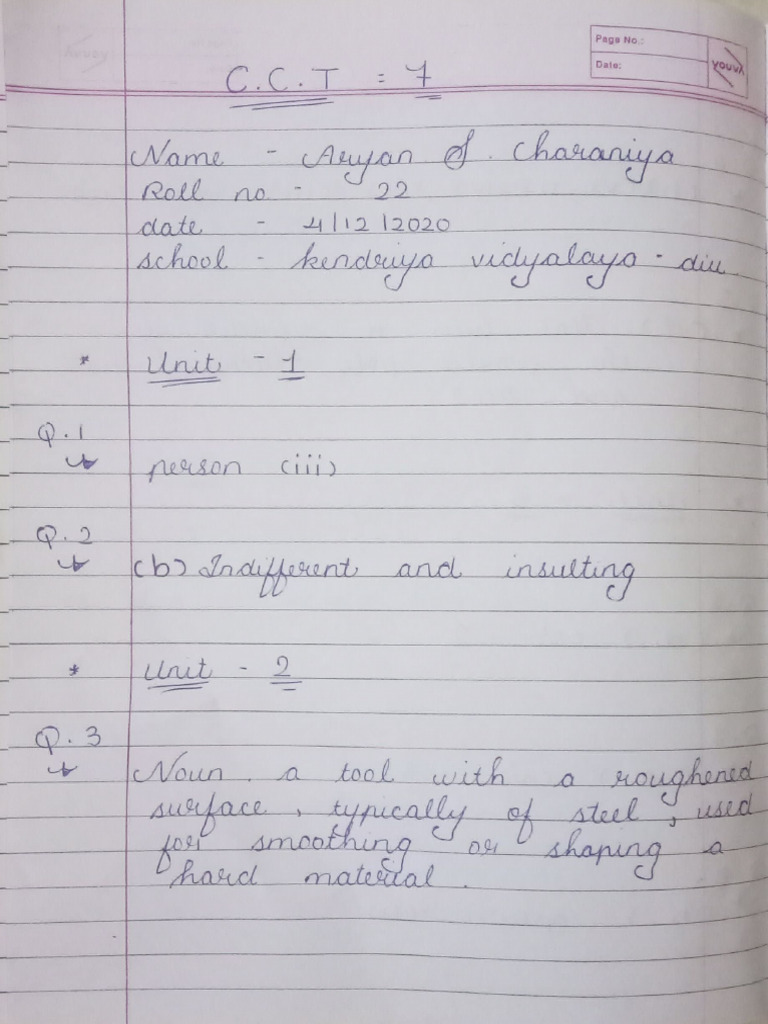 Page No.:
Date:
youva
C.C.T = 7
Name - Aryan S. Charaniya
Roll no - 22
date - 4/12/2020
school - kendriya vidyalaya - diu
* Unit - 1
Q.1
person (iii)
Q.2
(b) Indifferent and insulting
* Unit - 2
Q.3
Noun. a tool with a roughened
surface, typically of steel, used
for smoothing or shaping a
hard material.